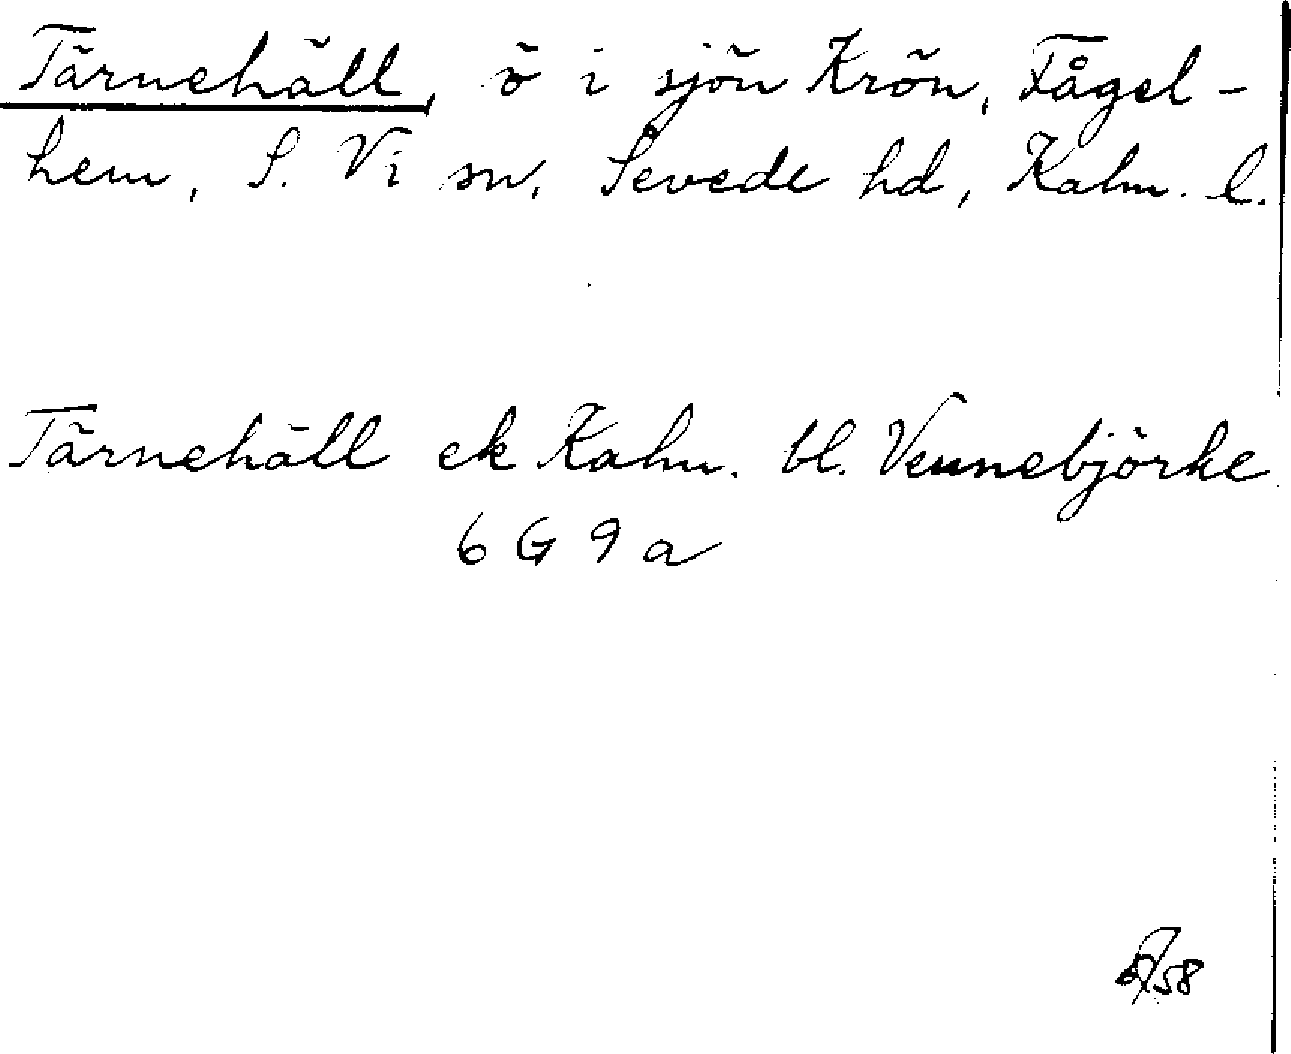 Tärnehäll, ö i sjön Krön, Fågel-
hem, S. Vi sn, Sevede hd, Kalm. l.
Tärnehäll ek Kalm. bl. Vennebjörke
6 G 9 a
58